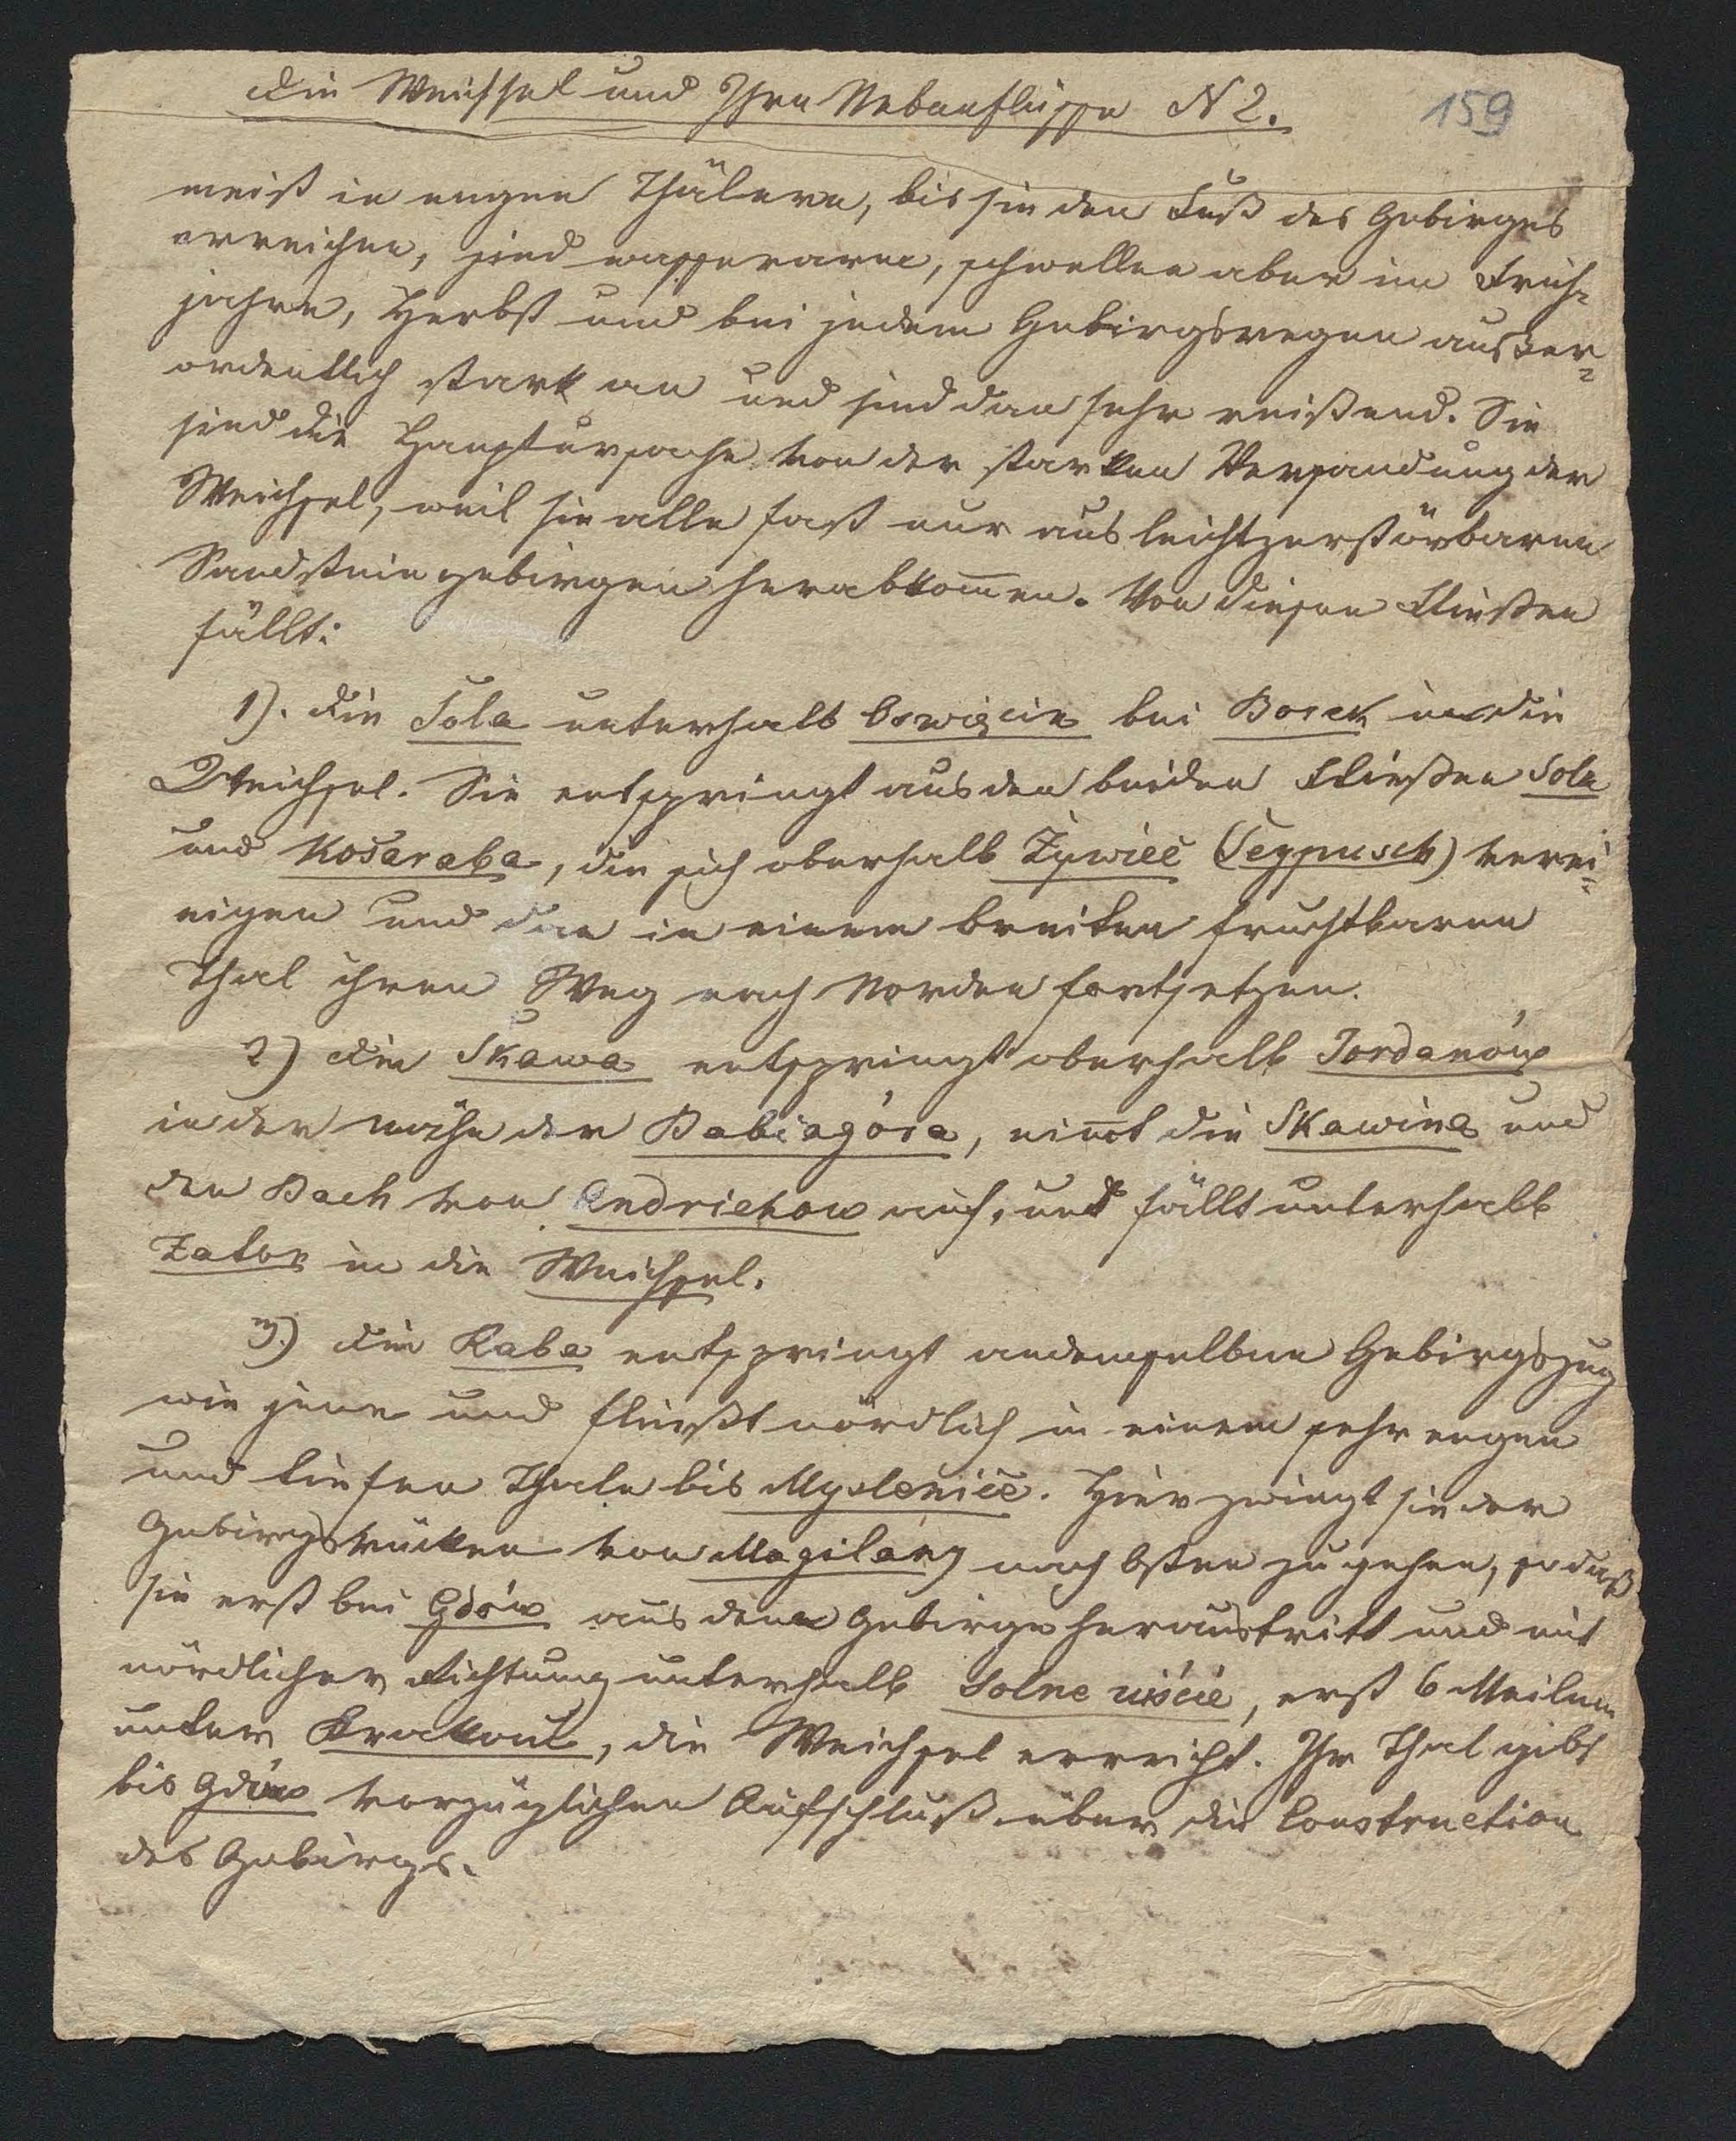 Die Weichsel und Ihre Nebenflüsse N 2.
159
meist in engen Thälern, bis sie den Fuß des Gebirges
erreichen, sind wasserarm, schwellen aber im Früh-
jahre, Herbst und bei jedem Gebirgsregen außer-
ordentlich stark an und sind dan sehr reißend. Sie
sind die Hauptursache von der starken Versandung der
Weichsel, weil sie alle fast nur aus leichtzerstörbaren
Sandsteingebirgen herabkom̄en. Von diesen Flüßen
fällt:
1). die Sola unterhalb Oswięcin bei Borek in die
Weichsel. Sie entspringt aus den beiden Flüßen Sola
und Kosaraba, die sich oberhalb Żywiec (Seypusch) verei-
nigen und dan in einem breiten fruchtbaren
Thal ihren Weg nach Norden fortsetzen.
2) die Skawa entspringt oberhalb Jordanów
in der nähe der Babiagóra, nim̄t die Skawina und
den Bach von Andrichow auf, und fällt unterhalb
Zator in die Weichsel.
3) die Raba entspringt andemselben Gebirgszug
wie jene und fließt nördlich in einem sehr engen
und tiefen Thale bis Myslenice. Hier zwingt sie der
Gebirgsrücken von Mogilany nach Osten zu gehen, so daß
sie erst bei Gdów aus dem Gebirge heraustritt und mit
nördlicher Richtung unterhalb Solne uiście, erst 6 Meilen
unter Krakau, die Weichsel erreicht. Ihr Thal gibt
bis Gdów vorzüglichen Aufschluß über die Construction
des Gebirgs.